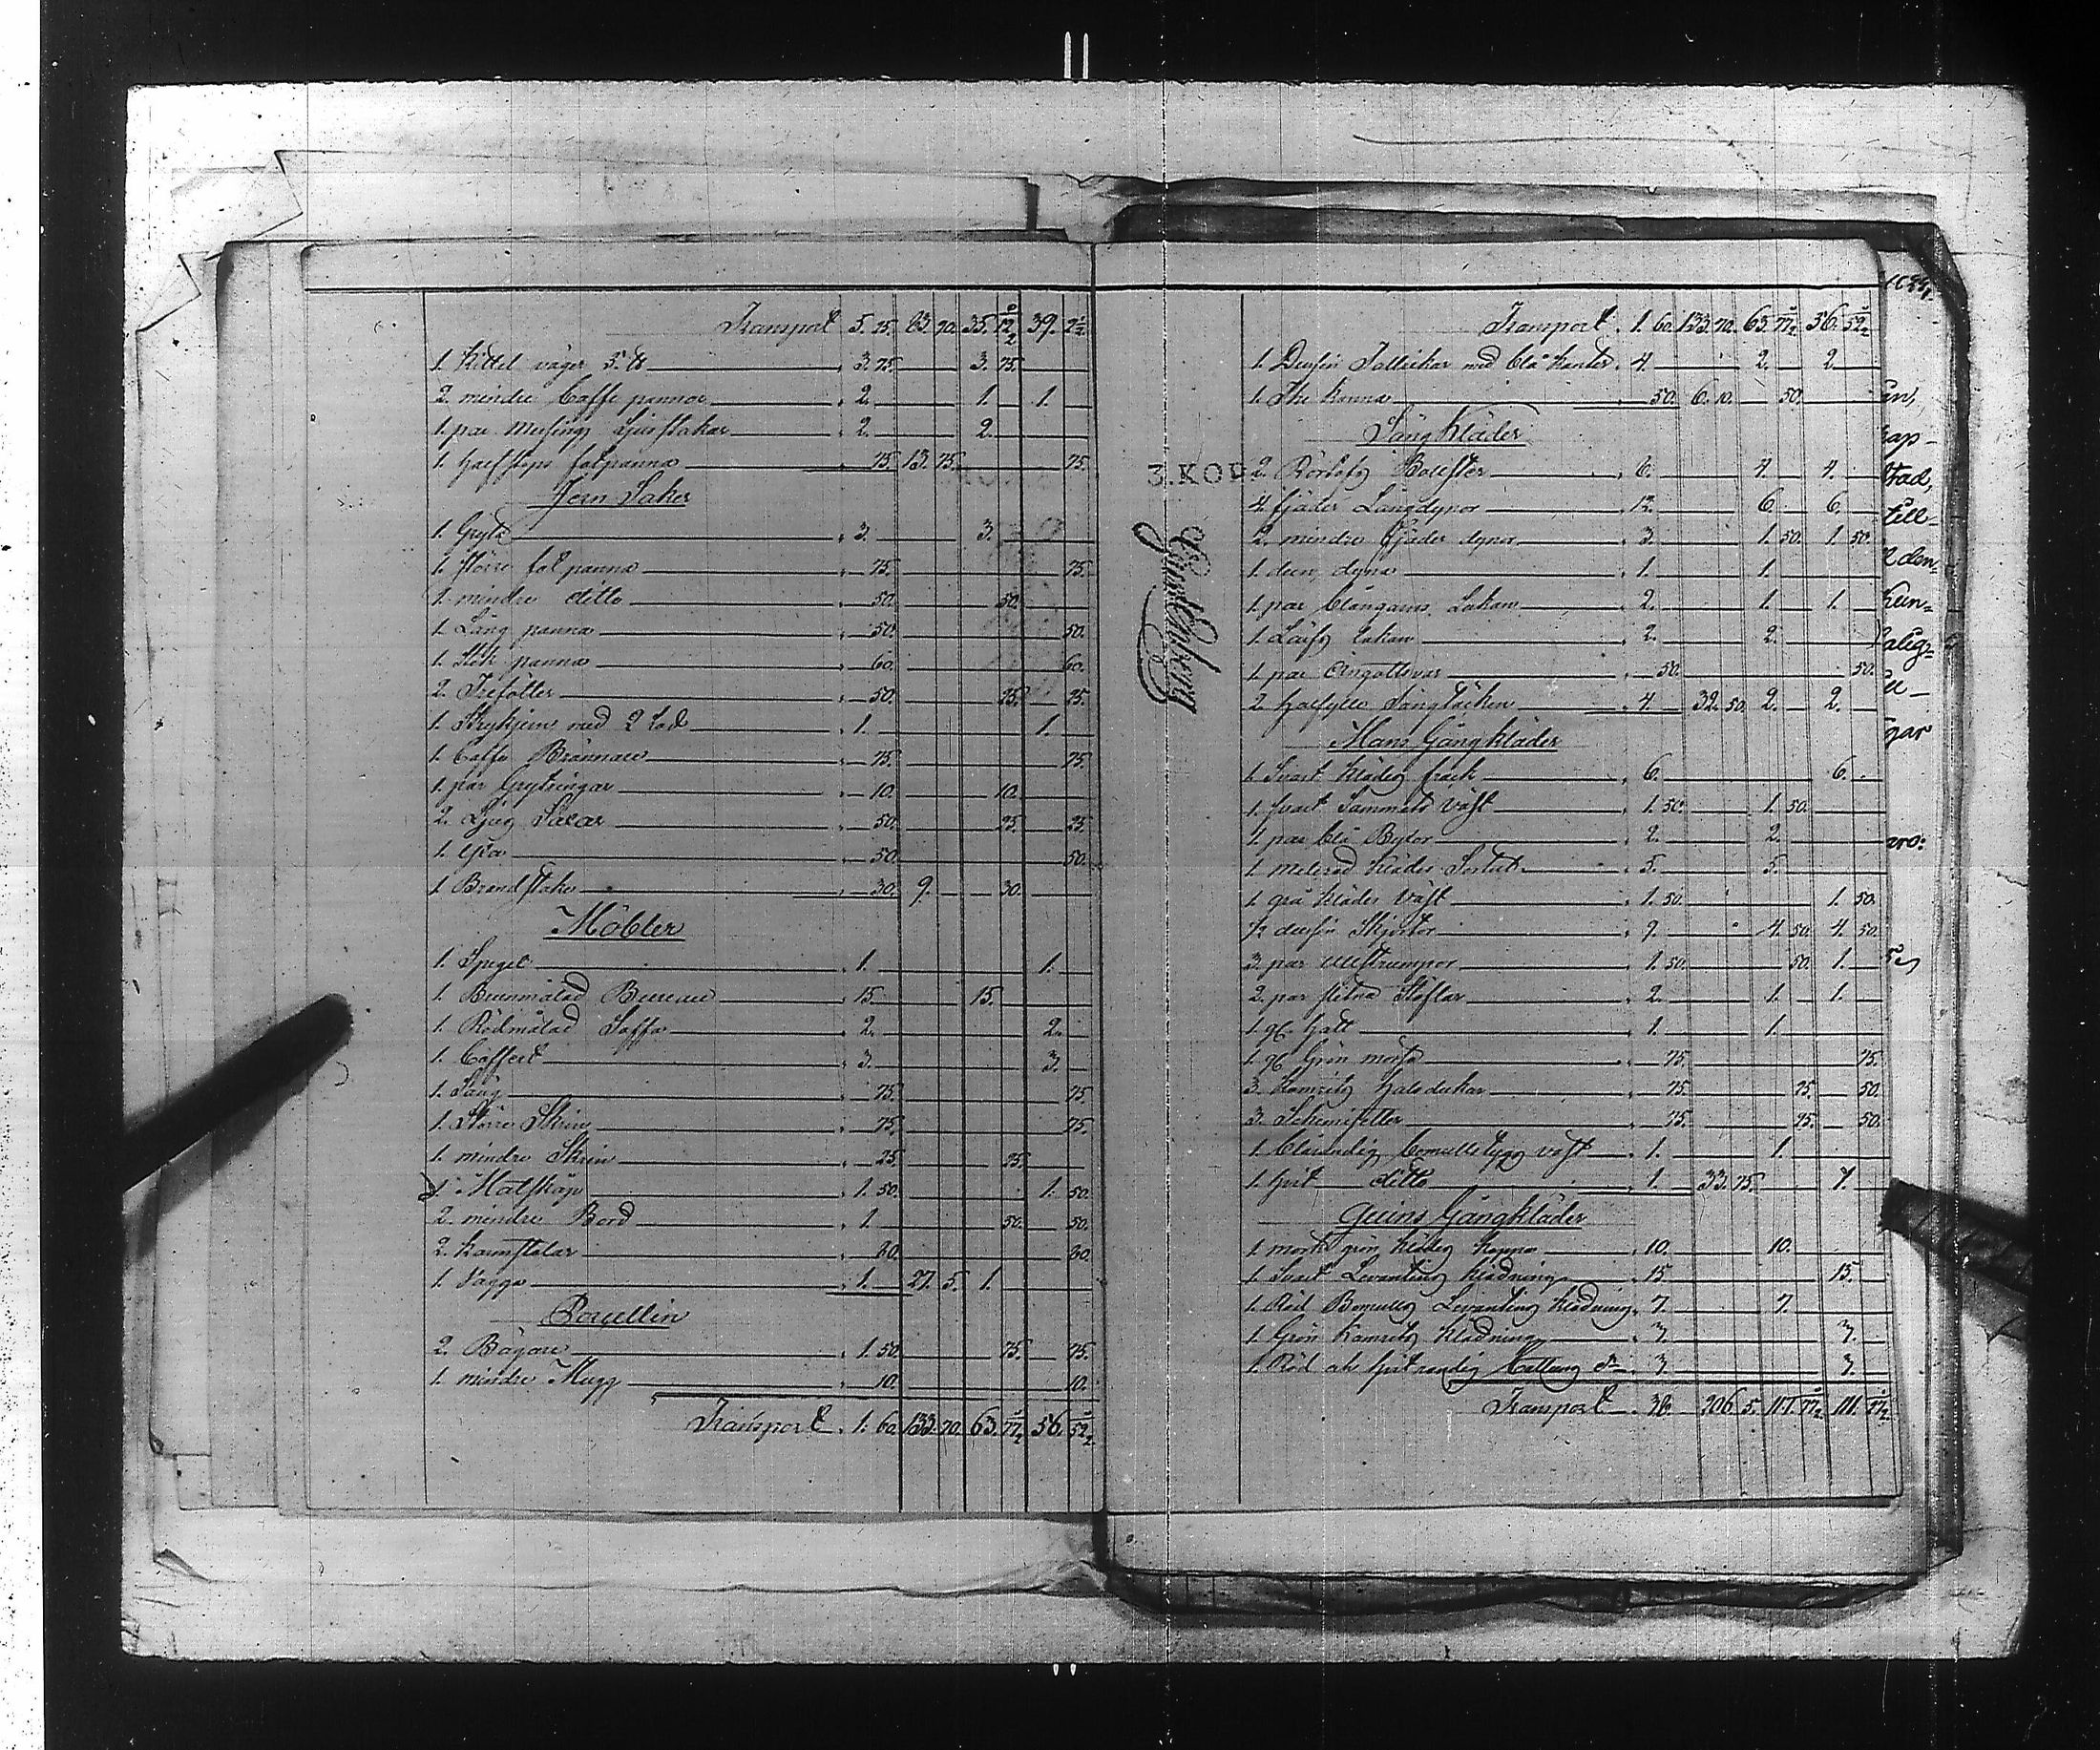 Transport 5. 25. 83. 70. 35. 12 39. 2½
1. Kittel väger 5. ℔ 3. 75. 3. 75.
2. mindre Caffe pannor 2. 1. 1.
1. par Messings Ljusstakar 2. 2.
1. halfstops fatpanna 75. 13. 75. 75.
Jern Saker
1. Gryta 3. 3.
1. större fat panna 75. 75.
1. mindre ditto 50. 50.
1. Lång panna 50. 50.
1. Stek panna 60. 60.
2. Trefötter 50. 25. 25.
1. Strykjern med 2 Lod 1. 1.
1. Caffe Brännare 75. 75.
1. par Grytringar 10. 10.
2. Ljus Saxar 50. 25. 25.
1. Yxa 50. 50.
1. Brandstake 30. 9. 30.
Möbler
1. Spegel 1. 1.
1. Brunmålad Bureau 15. 15.
1. Rödmålad Soffa 2. 2.
1. Coffert 3. 3.
1. Säng 75. 75.
1. Större Skrin 75. 75.
1. mindre Skrin 25. 25.
1. Matskåp 1. 50. 1. 50.
2. mindre Bord 1. 50. 50.
2. Karmstolar 30. 30.
1. Vagga 1. 27. 5. 1.
Porcellin
2. Bägare 1. 50. 75. 75.
1. mindre Mugg 10. 10.
Transport 1. 60. 133. 70. 63. 77½ 56. 52½
Transport 1. 60. 133. 70. 63. 77½ 56. 52½
1. Dussin Tallrikar med blå kanter 4. 2. 2.
1. The kanna 50. 6. 10. 50.
Säng Kläder
3. KOP
2. Bolster 6. 4. 4.
4 fjäder Långdynor 12. 6. 6.
2. mindre fjäder dynor 3. 1. 50. 1. 50.
1. dun dyna 1. 1.
1. par blångarns Lakan 2. 1. 1.
1. Lärfts Lakan 2. 2.
1. par Örngottsvar 50. 50.
2 halfylle Sängtäcken 4. 32. 50. 2. 2.
Mans Gångkläder
1. Svart klädes frack 6. 6.
1. svart Sammets väst 1. 50. 1. 50.
1. par blå Byxor 2. 2.
1. melerad kläder Sortut 5. 5.
1. grå kläder väst 1. 50. 1. 50.
½ dussin Skjortor 9. 4. 50. 4. 50.
3. par ullstrumpor 1. 50. 50. 1.
2. par slitna Stöflar 2. 1. 1.
1. Hatt 1. 1.
1. Grön mössa 75. 75.
3. Kamriks halsdukar 75. 25. 50.
3. Schemisetter 75. 25. 50.
1. blårandig bomullstygs väst 1. 1.
1. hvit ditto 1. 33. 75. 1.
Quins Gångkläder
1. mörk grön klädes kappa 10. 10.
1. Svart Levantins klädning 15. 15.
1. Röd Bomulls Levantins klädning 7. 7.
1. Grön Kamriks klädning 3. 3.
1. Röd och hvit randig Cattuns do 3. 3.
Transport 38. 206. 5. 111. 77½ 111. 77½